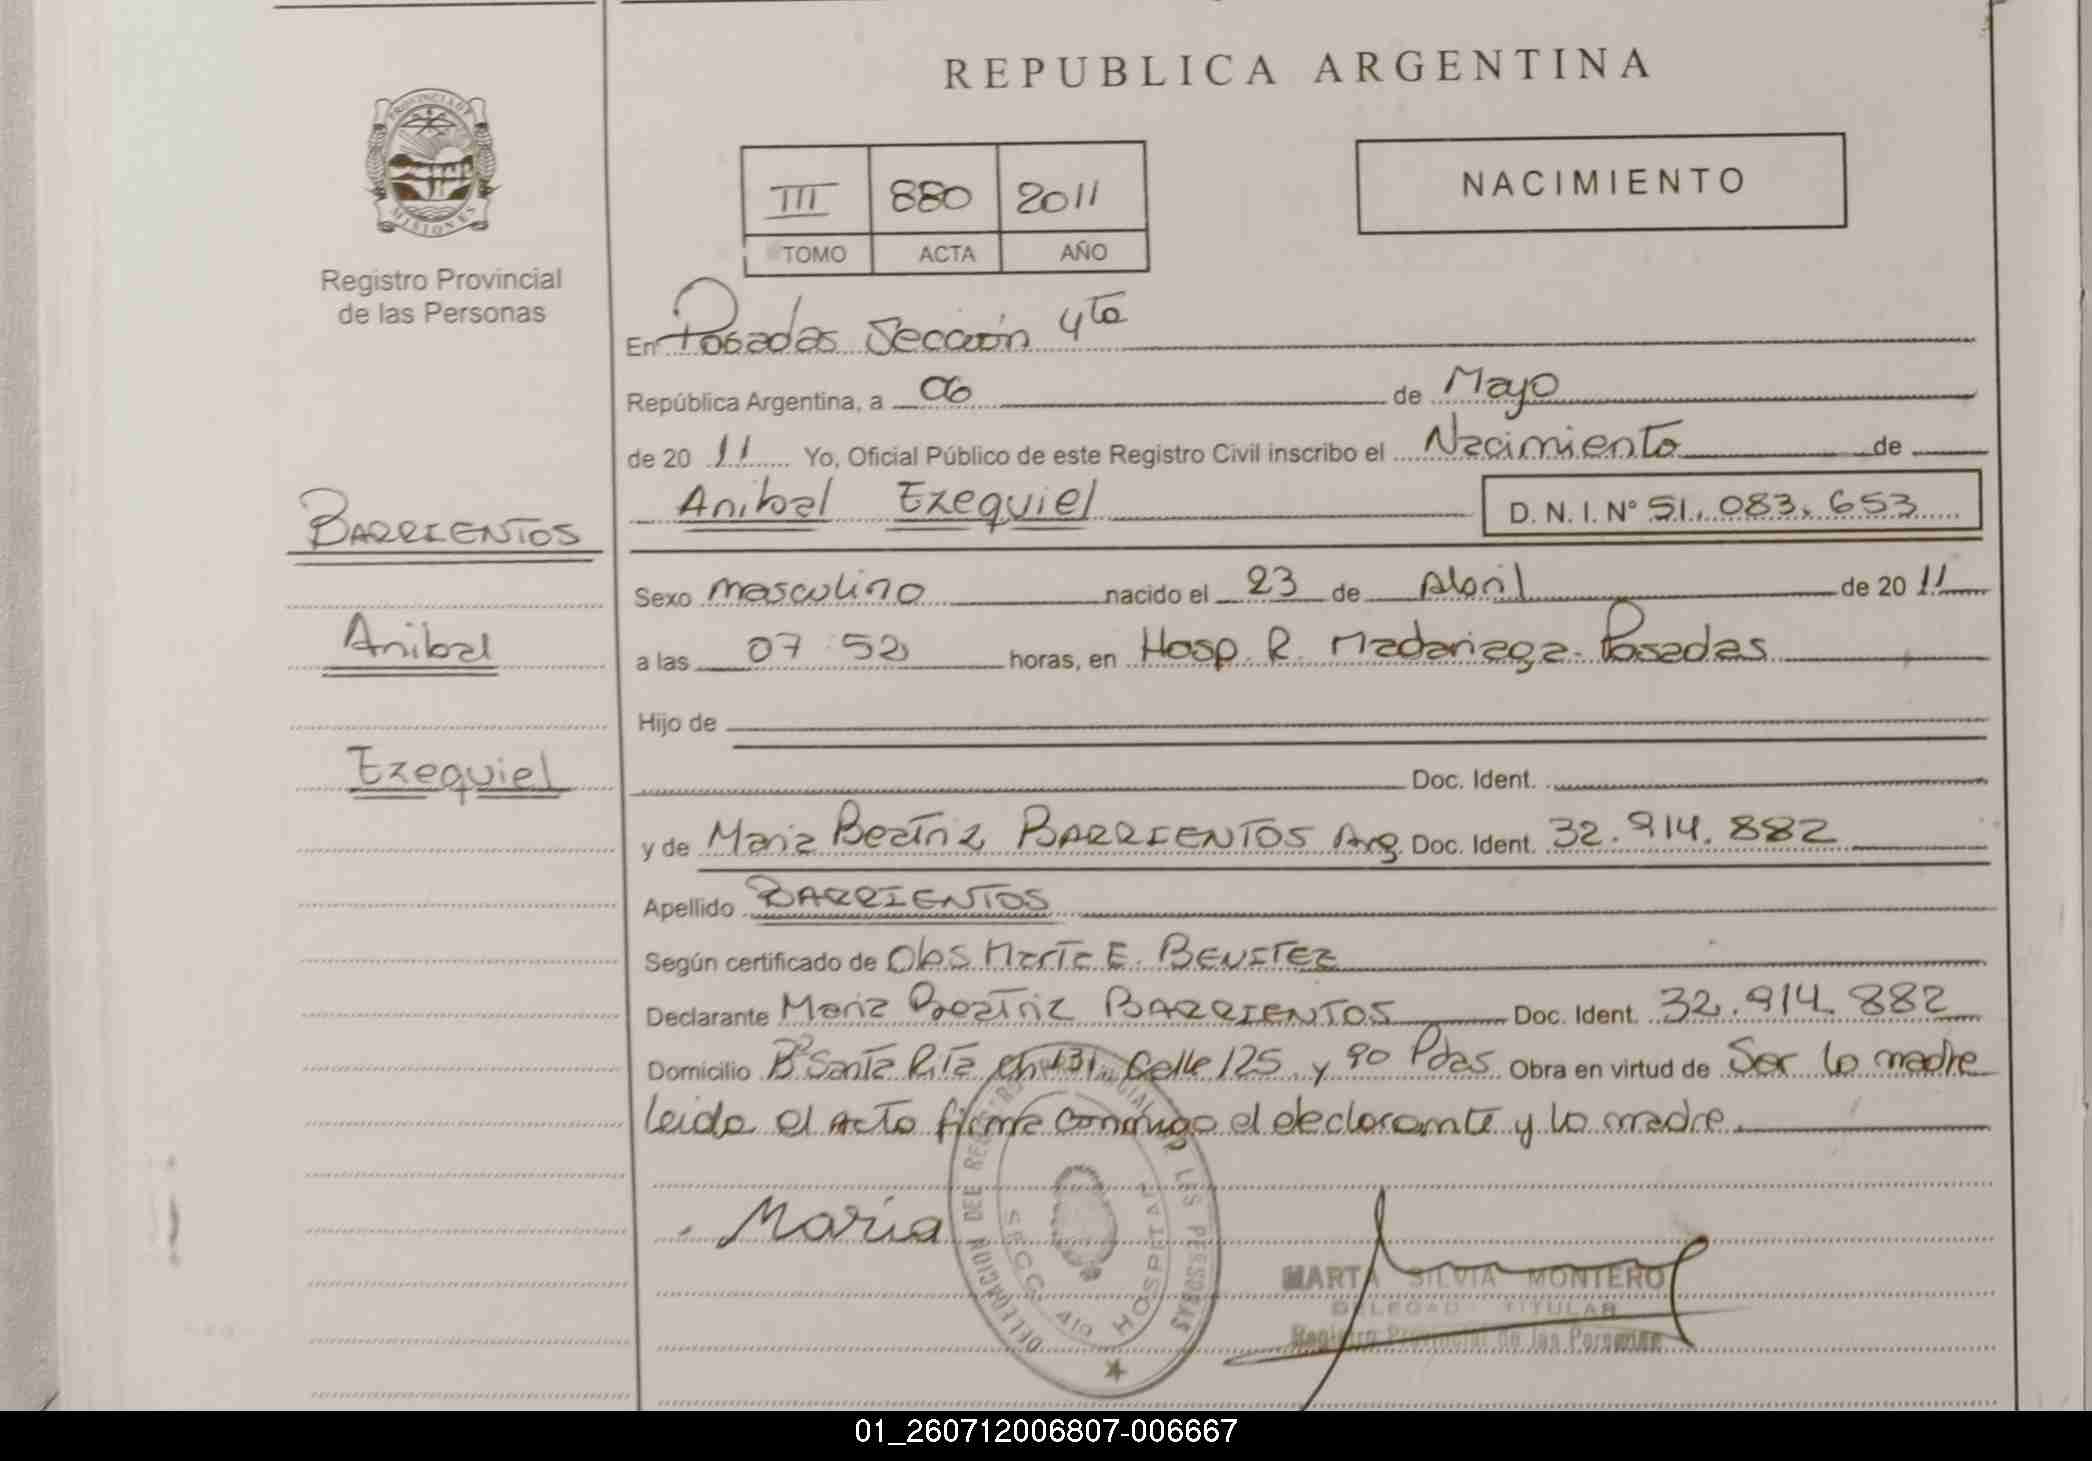 REPUBLICA ARGENTINA
PROVINCIA DE
MISIONES
Registro Provincial
de las Personas
III 880 2011
TOMO ACTA AÑO
NACIMIENTO
En Posadas Sección 4ta
República Argentina, a 06 de Mayo
de 20 11 Yo, Oficial Público de este Registro Civil inscribo el Nacimiento de
Anibal Ezequiel D. N. I. Nº 51.083.653
BARRIENTOS
Anibal
Ezequiel
Sexo masculino nacido el 23 de Abril de 20 11
a las 07:52 horas, en Hosp. R. Madariaga - Posadas
Hijo de
Doc. Ident.
y de Maria Beatriz BARRIENTOS Arg. Doc. Ident. 32.914.882
Apellido BARRIENTOS
Según certificado de Obs Marta E. BENITEZ
Declarante Maria Beatriz BARRIENTOS Doc. Ident. 32.914.882
Domicilio Bº Santa Rita Ch 131 Calle 125 y 90 Pdas Obra en virtud de Ser la madre
leida el acto firma conmigo el declarante y la madre
Maria
SECC. 4ta HOSPITAL
MARTA SILVIA MONTERO
DELEGADA TITULAR
Registro Provincial de las Personas
01_260712006807-006667